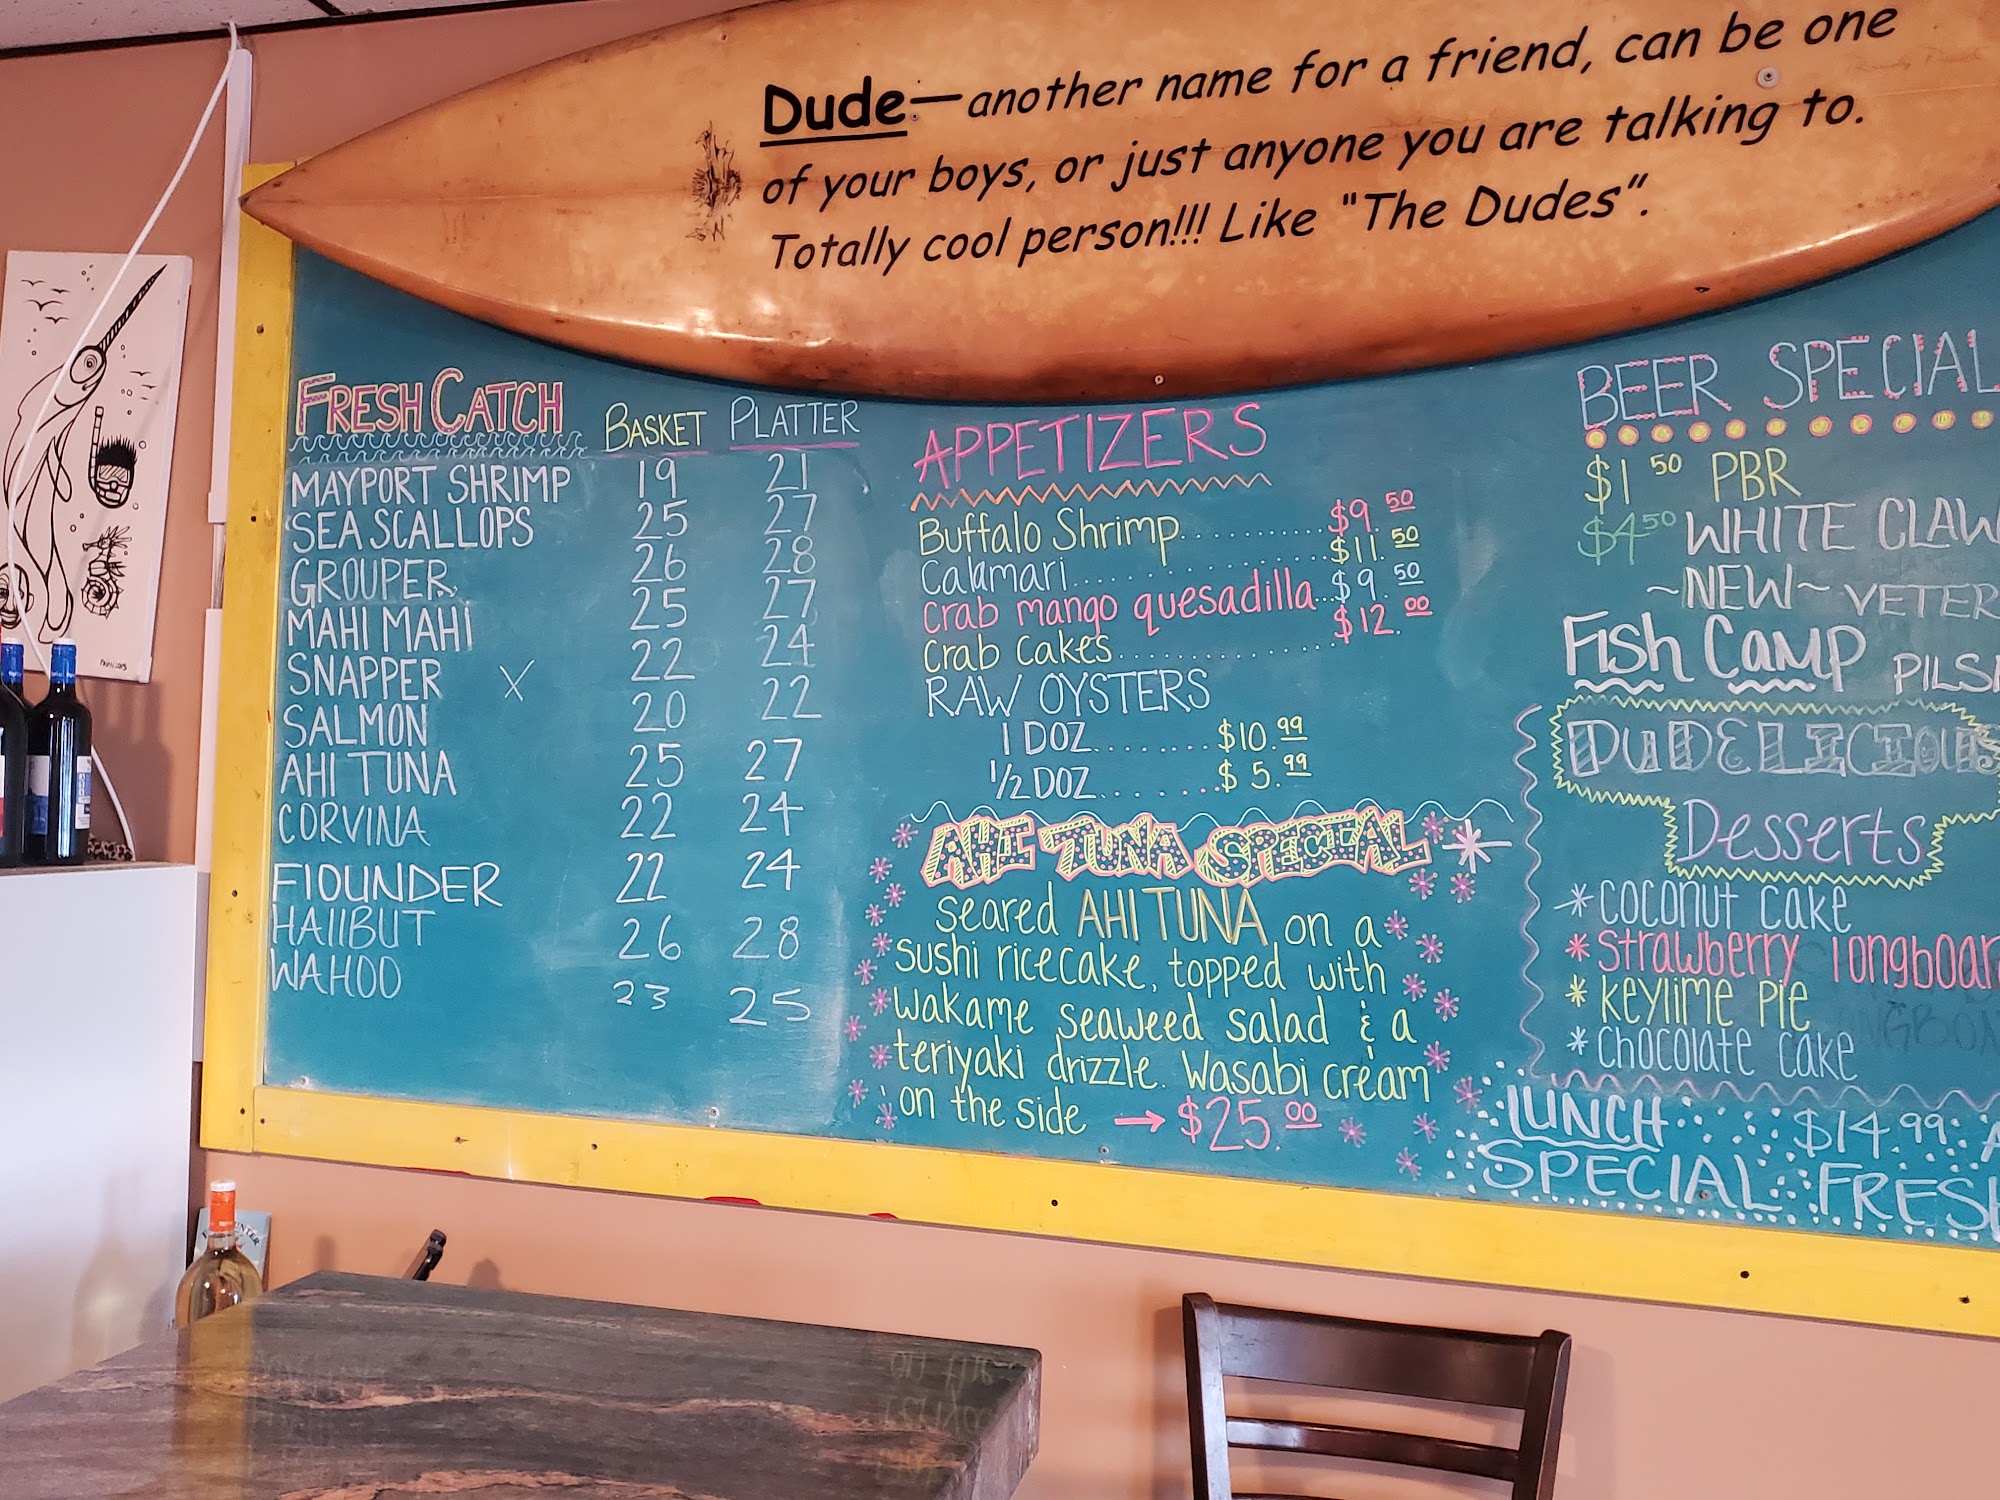 Dude—another name for a friend, can be one
of your boys, or just anyone you are talking to.
Totally cool person!!! Like "The Dudes".
FRESH CATCH BASKET PLATTER
MAYPORT SHRIMP 19 21
SEA SCALLOPS 25 27
GROUPER 26 28
MAHI MAHI 25 27
SNAPPER X 22 24
SALMON 20 22
AHI TUNA 25 27
CORVINA 22 24
FLOUNDER 22 24
HALIBUT 26 28
WAHOO 23 25
APPETIZERS
Buffalo Shrimp.......... $9.50
Calamari.......... $11.50
Crab mango quesadilla... $9.50
Crab Cakes.......... $12.00
RAW OYSTERS
1 DOZ........ $10.99
1/2 DOZ........ $5.99
AHI TUNA SPECIAL
seared AHI TUNA on a
sushi ricecake, topped with
wakame seaweed salad & a
teriyaki drizzle. Wasabi cream
on the side → $25.00
BEER SPECIAL
$1.50 PBR
$4.50 WHITE CLAW
~NEW~ VETER
FISH CAMP PILS
DUDELICIOUS
Desserts
* coconut cake
* strawberry longboar
* keylime pie
* chocolate cake
LUNCH $14.99
SPECIAL FRES